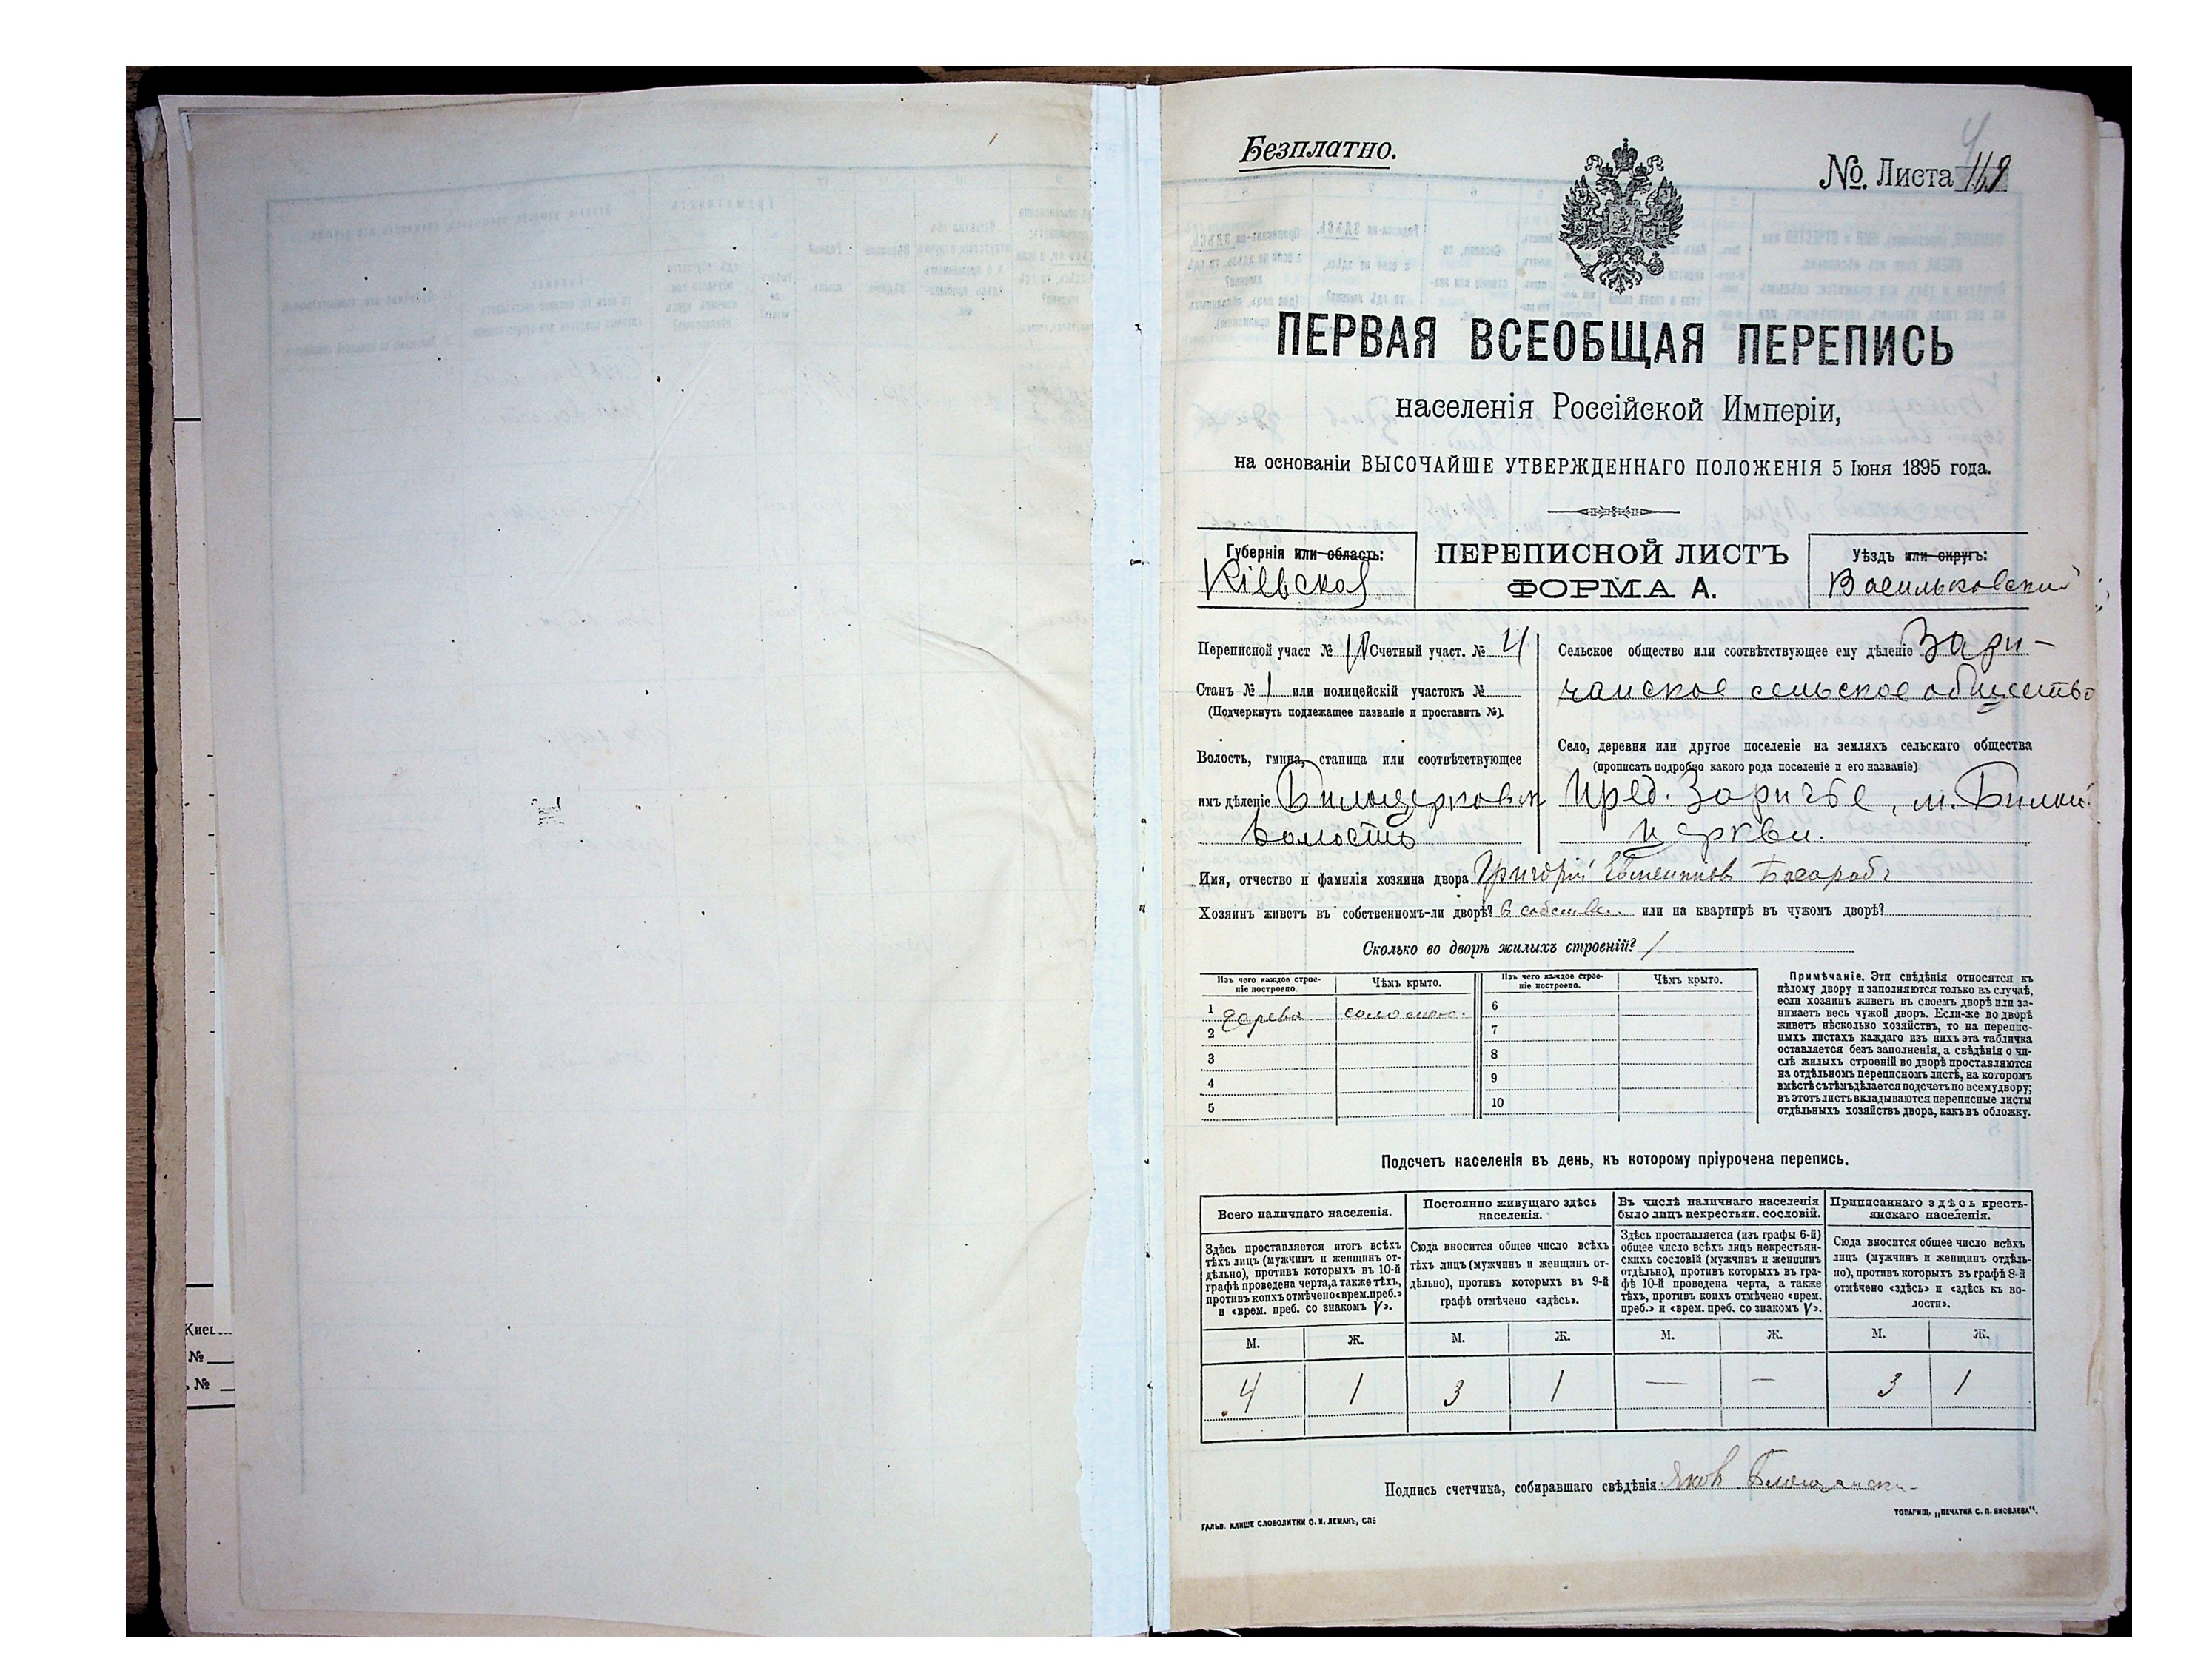 Безплатно.
No. Листа 169
4
ПЕРВАЯ ВСЕОБЩАЯ ПЕРЕПИСЬ
населенія Россійской Имперіи,
на основаніи ВЫСОЧАЙШЕ УТВЕРЖДЕННАГО ПОЛОЖЕНІЯ 5 Іюня 1895 года.
Губернія или область:
Кіевская
ПЕРЕПИСНОЙ ЛИСТЪ
ФОРМА А.
Уѣздъ или округъ:
Васильковский
Переписной участ № Счетный участ. № 4
Станъ № 1 или полицейскій участокъ №
(Подчеркнуть подлежащее названіе и проставить №).
Волость, гмина, станица или соотвѣтствующее
имъ дѣленіе Билоцерковск
волость
Сельское общество или соотвѣтствующее ему дѣленіе Зари-
чанское сельское общество
Село, деревня или другое поселеніе на земляхъ сельскаго общества
(прописать подробно какого рода поселеніе и его названіе)
Пред. Заричье, м. Билой
Церкви.
Имя, отчество и фамилія хозяина двора Григорій
Хозяинъ живетъ въ собственномъ-ли дворѣ? в собствен. или на квартирѣ въ чужомъ дворѣ?
Сколько во дворѣ жилыхъ строеній? 1
Изъ чего каждое строе-
ніе построено.
Чѣмъ крыто.
Изъ чего каждое строе-
ніе построено.
Чѣмъ крыто.
1 дерева соломою.
2
3
4
5
6
7
8
9
10
Примѣчаніе. Эти свѣдѣнія относятся къ
цѣлому двору и заполняются только въ случаѣ,
если хозяинъ живетъ въ своемъ дворѣ или за-
нимаетъ весь чужой дворъ. Если-же во дворѣ
живетъ нѣсколько хозяйствъ, то на перепис-
ныхъ листахъ каждаго изъ нихъ эта табличка
оставляется безъ заполненія, а свѣдѣнія о чи-
слѣ жилыхъ строеній во дворѣ проставляются
на отдѣльномъ переписномъ листѣ, на которомъ
вмѣстѣ съ тѣмъ дѣлается подсчетъ по всему двору;
въ этотъ листъ вкладываются переписные листы
отдѣльныхъ хозяйствъ двора, какъ въ обложку.
Подсчетъ населенія въ день, къ которому пріурочена перепись.
Всего наличнаго населенія.
Постоянно живущаго здѣсь
населенія.
Въ числѣ наличнаго населенія
было лицъ некрестьян. сословій.
Приписаннаго здѣсь кресть-
янскаго населенія.
Здѣсь проставляется итогъ всѣхъ
тѣхъ лицъ (мужчинъ и женщинъ от-
дѣльно), противъ которыхъ въ 10-й
графѣ проведена черта, а также тѣхъ,
противъ коихъ отмѣчено «врем. преб.»
и «врем. преб. со знакомъ V».
Сюда вносится общее число всѣхъ
тѣхъ лицъ (мужчинъ и женщинъ от-
дѣльно), противъ которыхъ въ 9-й
графѣ отмѣчено «здѣсь».
Здѣсь проставляется (изъ графы 6-й)
общее число всѣхъ лицъ некрестьян-
скихъ сословій (мужчинъ и женщинъ
отдѣльно), противъ которыхъ въ гра-
фѣ 10-й проведена черта, а также
тѣхъ, противъ коихъ отмѣчено «врем.
преб.» и «врем. преб. со знакомъ V».
Сюда вносится общее число всѣхъ
лицъ (мужчинъ и женщинъ отдѣль-
но), противъ которыхъ въ графѣ 8-й
отмѣчено «здѣсь» и «здѣсь къ во-
лости».
М. Ж. М. Ж. М. Ж. М. Ж.
4 1 3 1 — — 3 1
Подпись счетчика, собиравшаго свѣдѣнія Яков
ГАЛЬВ. КЛИШЕ СЛОВОЛИТНИ О. И. ЛЕМАНЪ, СПБ
ТОВАРИЩ. „ПЕЧАТНЯ С. П. ЯКОВЛЕВА“.
№
№